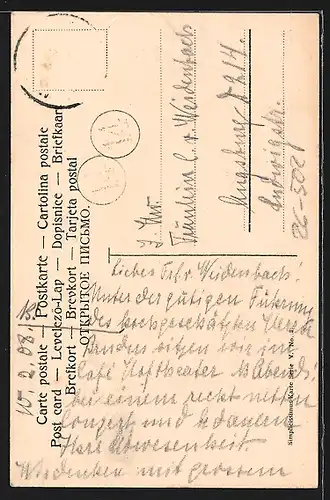 Carte postale — Postkarte — Cartolina postale
Post card — Levelező-Lap — Dopisnice — Briefkaart
Brefkort — Brevkort — Tarjeta postal
ОТКРЫТОЕ ПИСЬМО.
Fräulein C. v. Weidenbach
Augsburg D 214.
Ludwigstr.
26-502
10/2.08
Liebes Frl. v. Weidenbach!
Unter der gütigen Führung
des hochgeschätzten Herrn
sitzen wir im
Café Hoftheater Abends!
bei einem recht netten
Conzert und bedauern
Ihre Abwesenheit.
mit grossem
Simplicissimus-Karte Serie V. No.